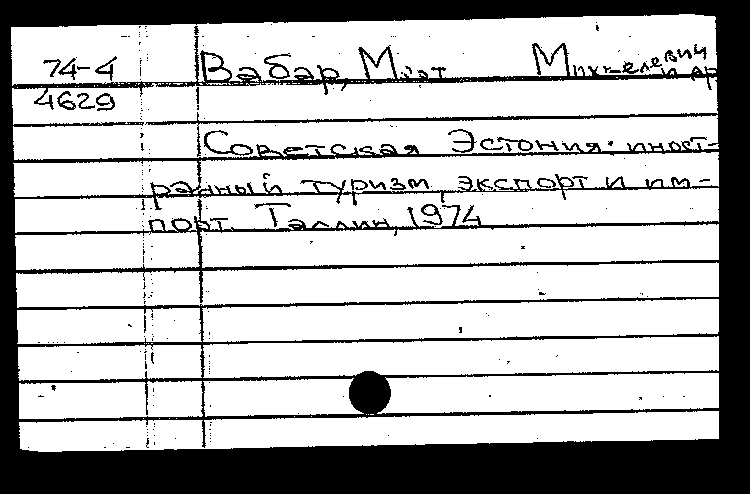 74-4 Вабар, Март Миккелевич и др
4629
Советская Эстония: иност-
ранный туризм, экспорт и им-
порт. Таллин, 1974